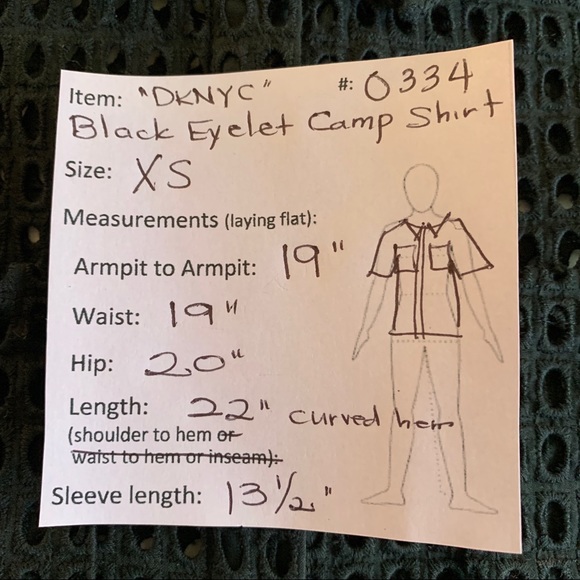 Item: "DKNYC" #: 0334
Black Eyelet Camp Shirt
Size: XS
Measurements (laying flat):
Armpit to Armpit: 19"
Waist: 19"
Hip: 20"
Length: 22" curved hem
(shoulder to hem or
waist to hem or inseam):
Sleeve length: 13 1/2"